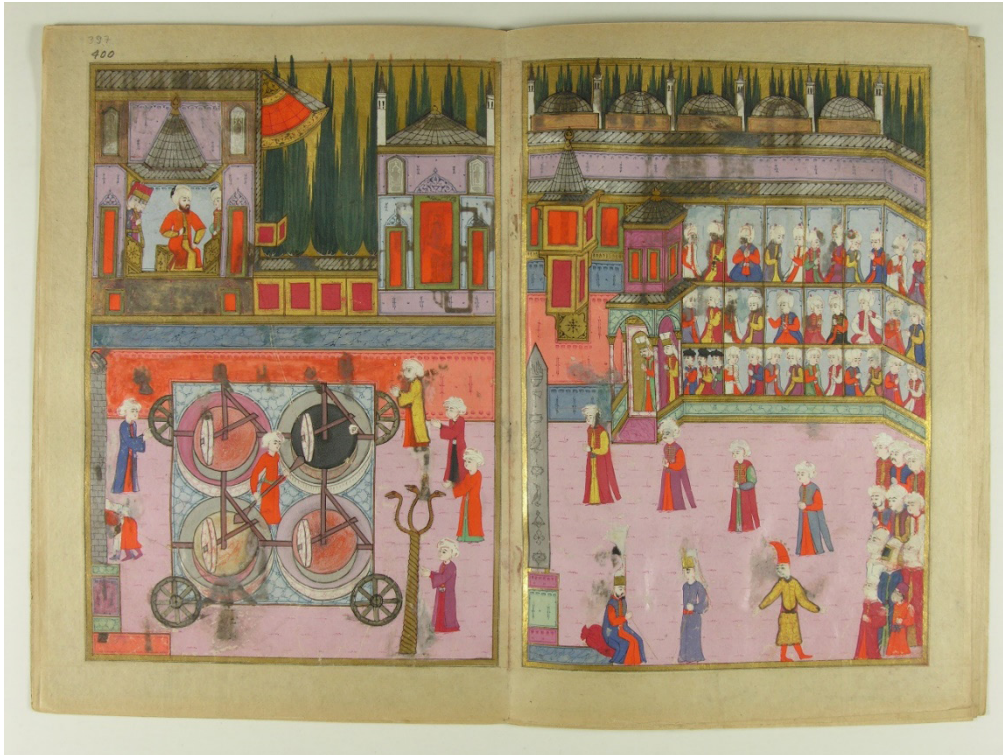 397
400